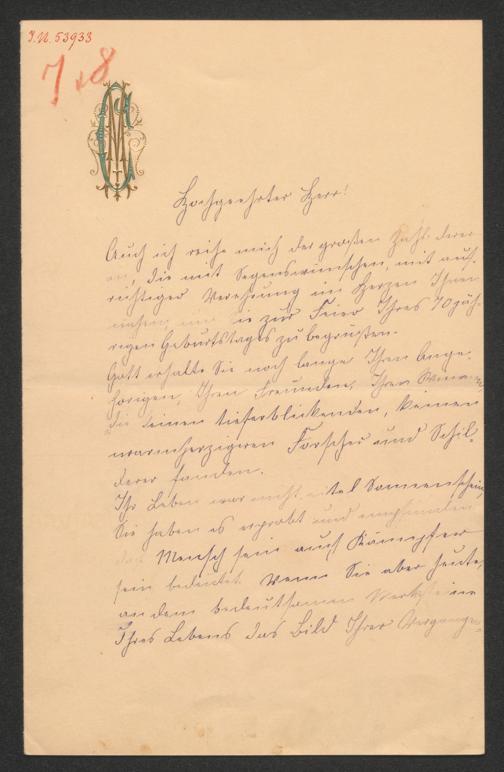 I.N. 53933
7 + 8
Hochgeehrter Herr!
Auch ich reihe mich der großen Zahl derer
an, die mit Segenswünschen, mit auf-
richtiger Verehrung im Herzen Ihnen
nahen, um Sie zur Feier Ihres 70 jäh-
rigen Geburtstages zu begrüßen.
Gott erhalte Sie noch lange Ihren Ange-
hörigen, Ihren Freunden, Ihren
die keinen tieferblickenden, keinen
warmherzigeren Forscher und Schil-
derer fanden.
Ihr Leben war nicht eitel Sonnenschein,
Sie haben es erprobt und empfunden
daß Mensch sein auch Kämpfer
sein bedeutet. Wenn Sie aber heute,
an dem bedeutsamen Marksteine
Ihres Lebens das Bild Ihrer Vergangen-